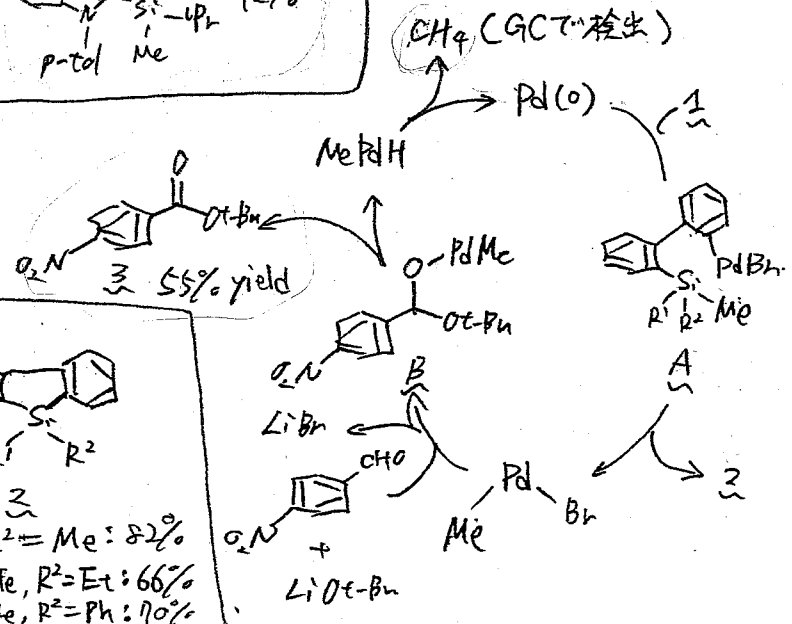 N
Si
iPr
p-tol
Me
CH4 (GCで検出)
Pd(0)
1
MePdH
O
Ot-Bu
O2N
3 55% yield
O-PdMe
Ot-Bu
O2N
B
PdBr
Si
R1 R2 Me
A
LiBr
CHO
O2N
+
LiOt-Bu
Pd
Me
Br
2
Si
R2
2
2 = Me : 82%
e, R2=Et : 66%
e, R2=Ph : 70%